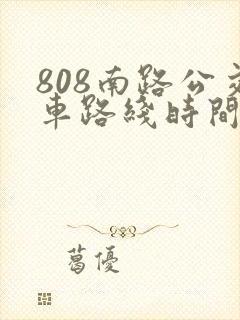 808南路公交
車路綫時間
葛優